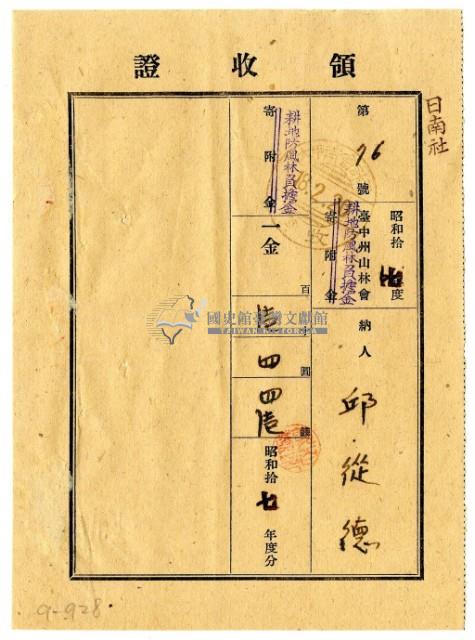 領收證
日南社
第76號
昭和拾七年度
臺中州山林會
寄附金
耕地防風林負擔金
納人 邱從德
18.2.20
寄附金
耕地防風林負擔金
一金
百
十
圓
錢
壹四四壹
昭和拾七年度分
國史館臺灣文獻館
TAIWAN HISTORICA
9-928